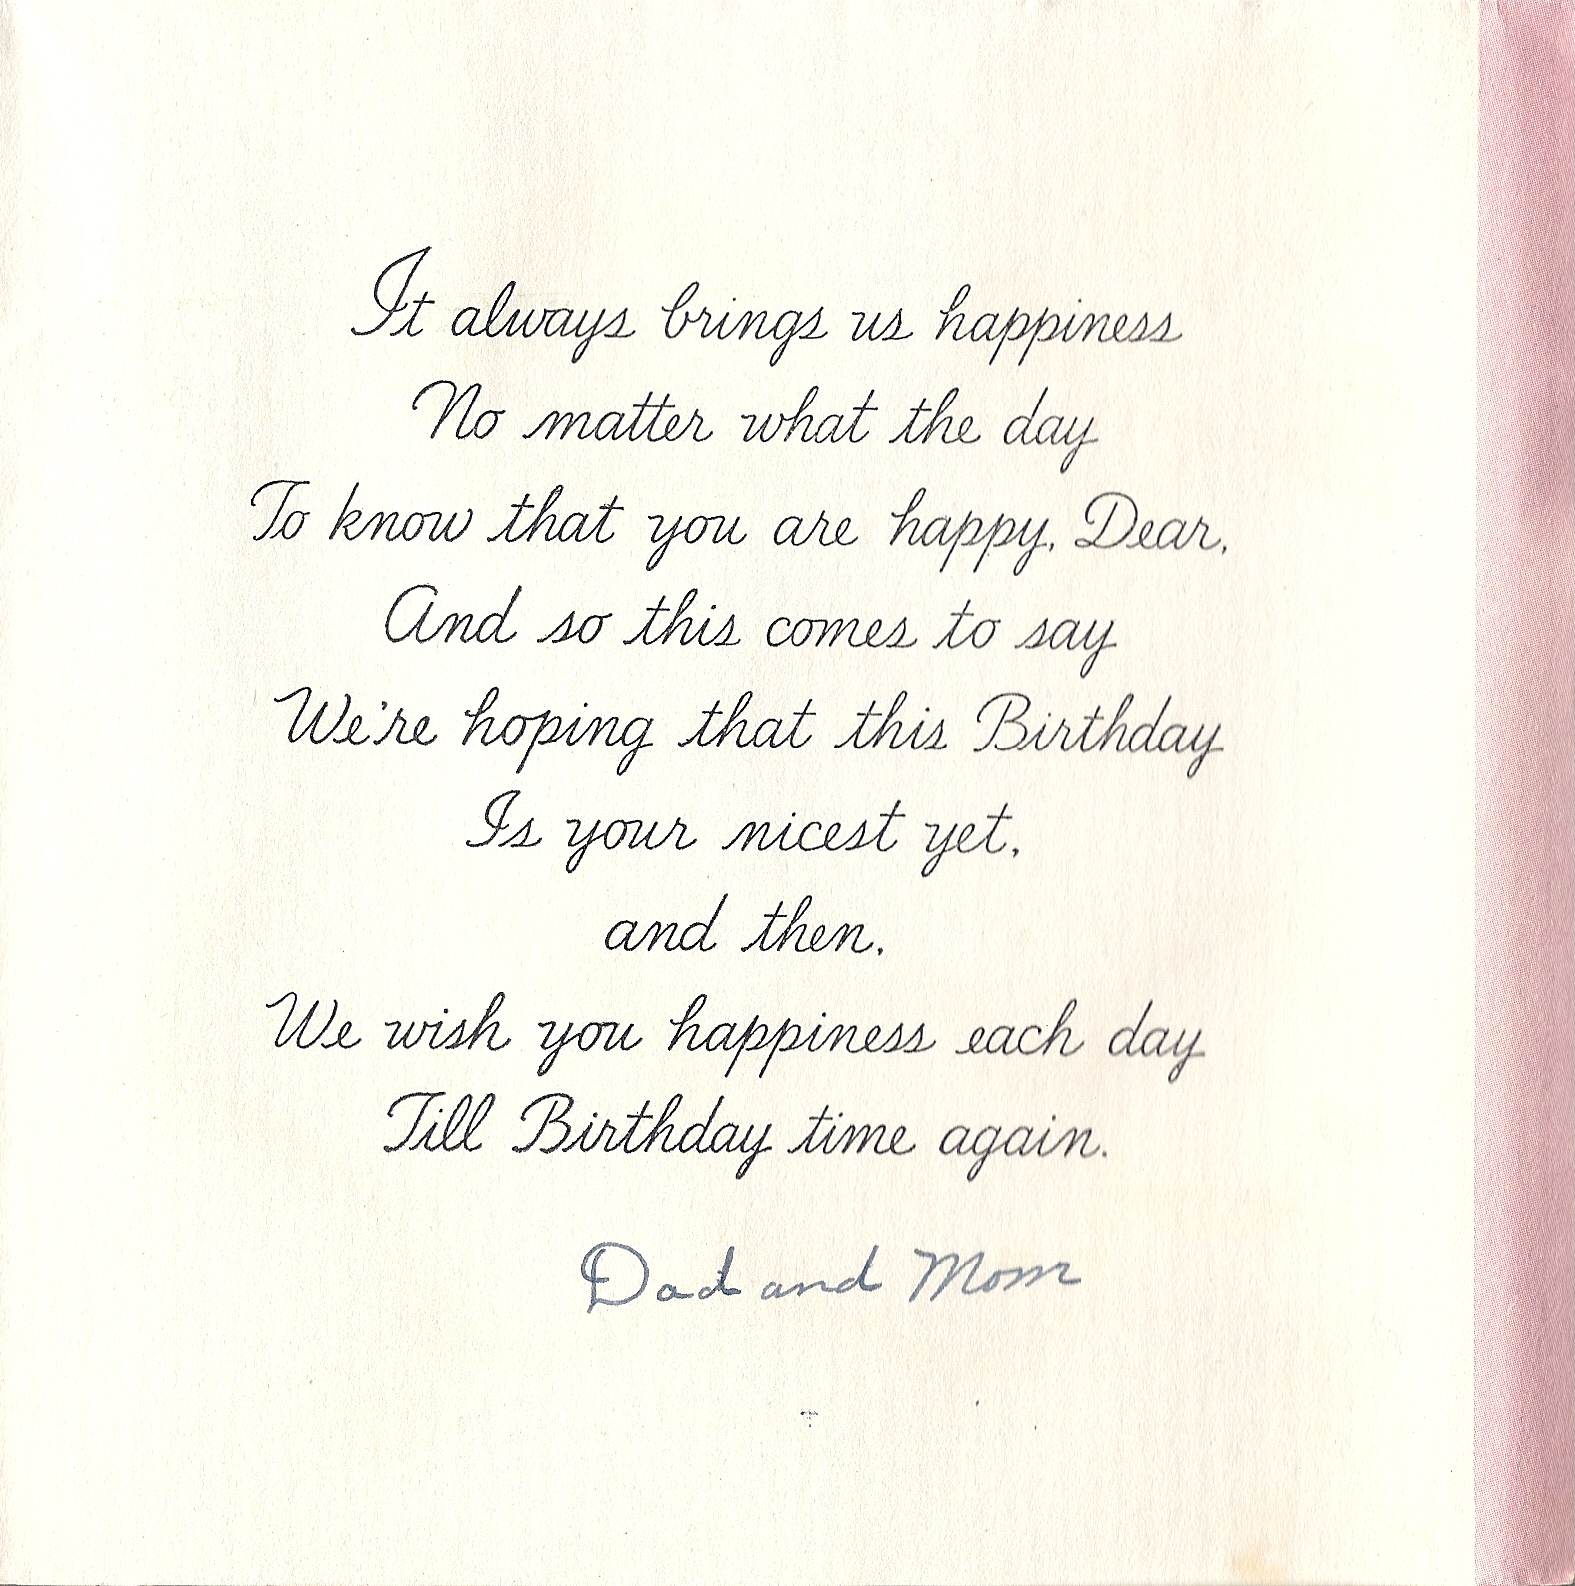 It always brings us happiness
No matter what the day
To know that you are happy, Dear,
And so this comes to say
We're hoping that this Birthday
Is your nicest yet,
and then,
We wish you happiness each day
Till Birthday time again.
Dad and Mom